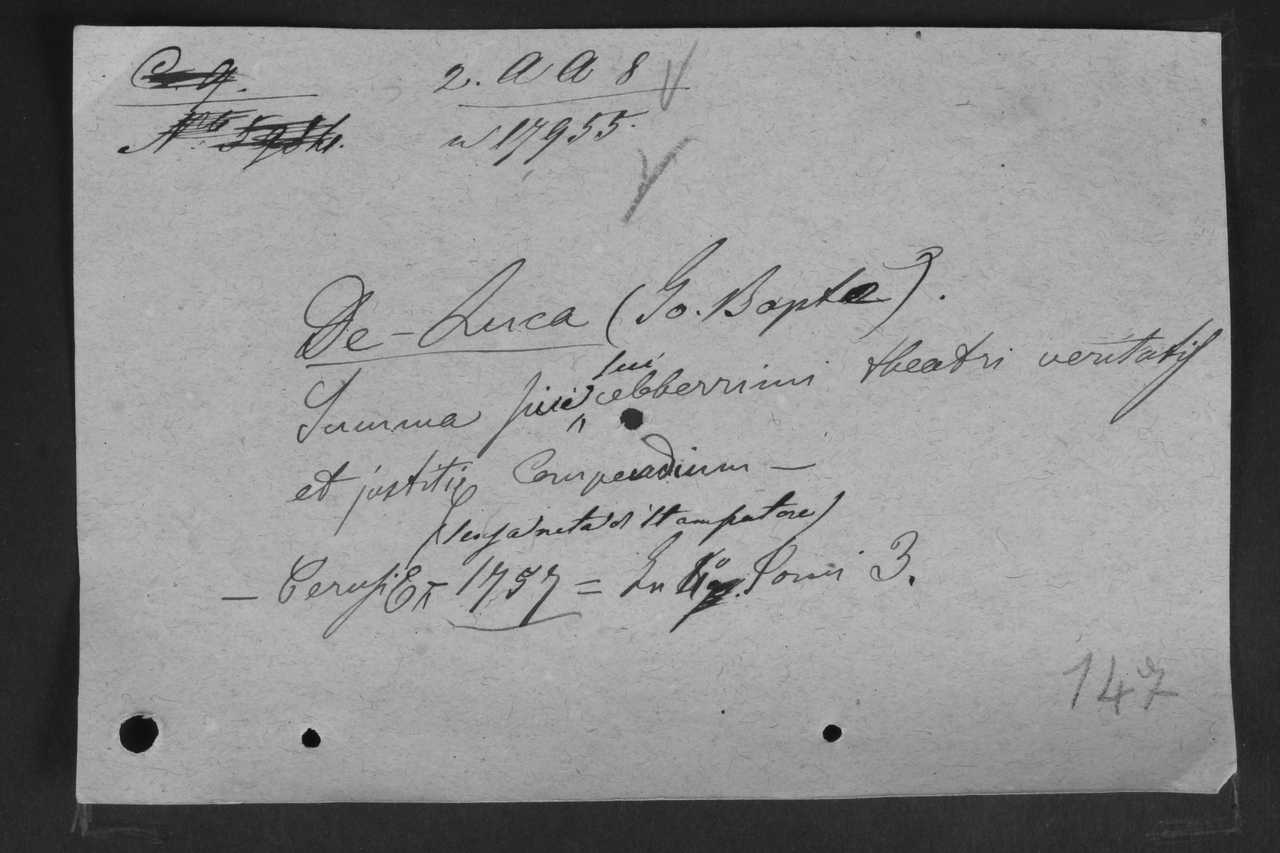 C. 9.
2. A A 8
N.º 5986.
n 17955.
De-Luca (Jo. Bapta).
Summa sive sui celeberrimi theatri veritatis
et justitie Compendium —
(senza nota di stampatore)
— 1757 = In 4º Tomi 3.
147